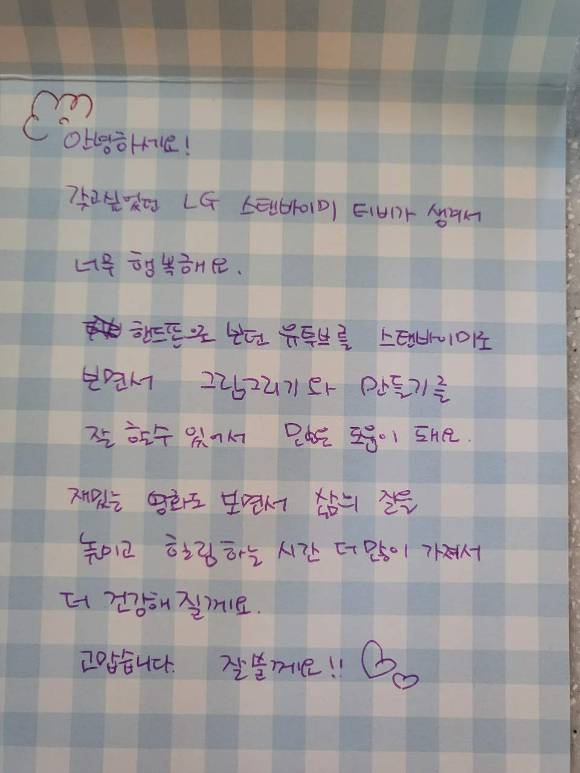 안녕하세요!
갖고싶었던 LG 스탠바이미 티비가 생겨서
너무 행복해요.
핸드폰으로 보던 유튜브를 스탠바이미로
보면서 그림그리기와 만들기를
잘 할수 있어서 많은 도움이 돼요.
재밌는 영화도 보면서 삶의 질을
높이고 힐링하는 시간 더 많이 가져서
더 건강해질께요.
고맙습니다. 잘볼께요!!